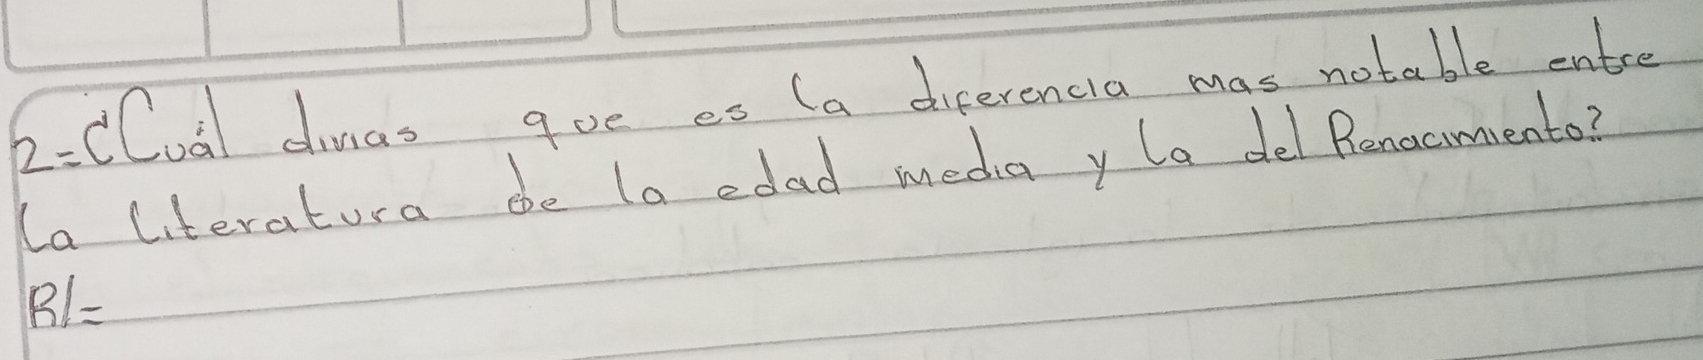 2=¿Cuál divias que es la diferencia mas notable entre
la literatura de la edad media y la del Renacimiento?
R/=